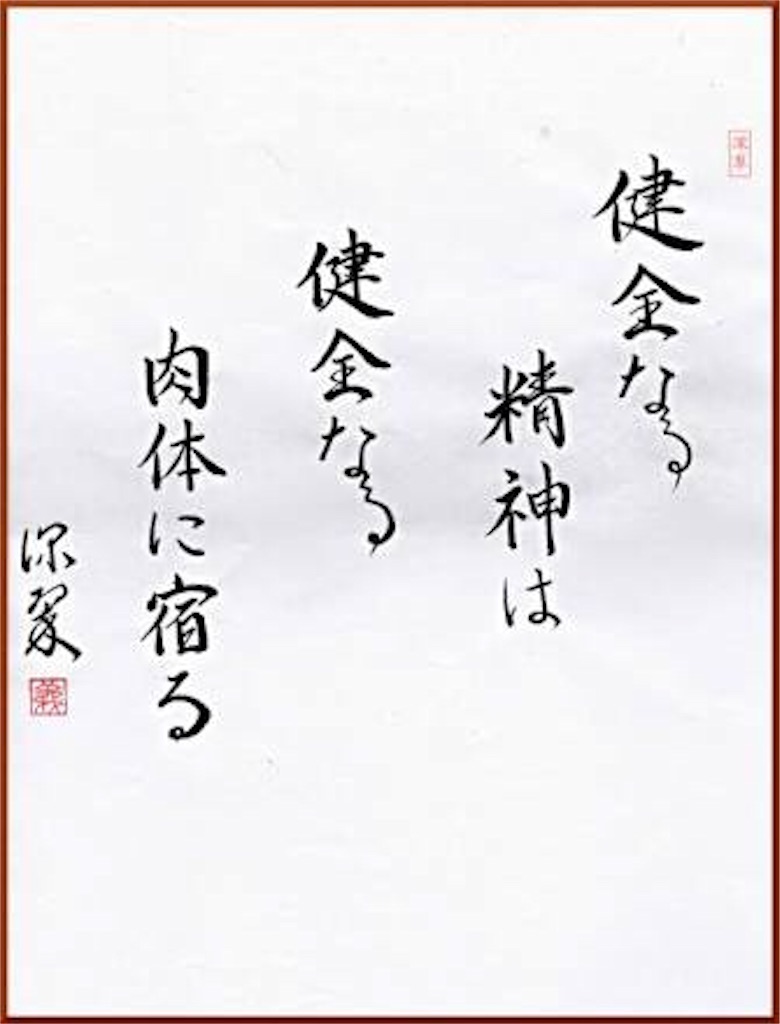 健全なる
精神は
健全なる
肉体に宿る
深翠